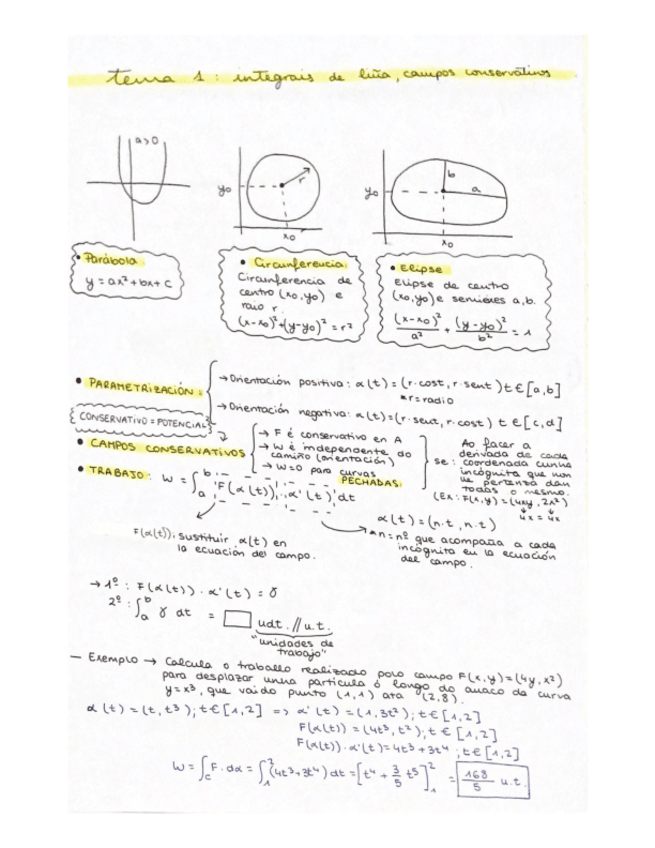 tema 1: integrais de liña, campos conservativos
a>0
y₀
r
x₀
y₀
b
a
x₀
• Parábola
y = ax² + bx + c
• Circunferencia
Circunferencia de
centro (x₀,y₀) e
raio r.
(x-x₀)²+(y-y₀)² = r²
• Elipse
Elipse de centro
(x₀,y₀) e semieixes a,b.
(x-x₀)²/a² + (y-y₀)²/b² = 1
• PARAMETRIZACIÓN:
→ Orientación positiva: α(t) = (r·cost, r·sent) t ∈ [a,b]
*r=radio
→ Orientación negativa: α(t)=(r·sent, r·cost) t ∈ [c,d]
{ CONSERVATIVO = POTENCIAL }
• CAMPOS CONSERVATIVOS
→ F é conservativo en A
→ W é independente do
camiño (orientación)
→ W=0 para curvas
PECHADAS.
se:
Ao facer a
derivada de cada
coordenada cunha
incógnita que non
lle pertenza dan
todas o mesmo.
(Ex: F(x,y) = (4xy, 2x²)
4x = 4x
• TRABAJO: W = ∫ₐᵇ F(α(t)) · α'(t) dt
F(α(t)): sustituir α(t) en
la ecuación del campo.
α(t) = (n·t, n·t)
*n = nº que acompaña a cada
incógnita en la ecuación
del campo.
→ 1º: F(α(t)) · α'(t) = γ
2º: ∫ₐᵇ γ dt = □ udt. // u.t.
"unidades de
trabajo"
— Exemplo → Calcula o traballo realizado polo campo F(x,y)=(4y, x²)
para desplazar unha partícula ó longo do anaco da curva
y=x³, que vai do punto (1,1) ata (2,8).
α(t) = (t, t³); t∈[1,2] => α'(t) = (1, 3t²); t∈[1,2]
F(α(t)) = (4t³, t²); t∈[1,2]
F(α(t)) · α'(t) = 4t³ + 3t⁴; t∈[1,2]
W = ∫_C F·dα = ∫₁² (4t³+3t⁴) dt = [t⁴ + 3/5 t⁵]₁² = 168/5 u.t.